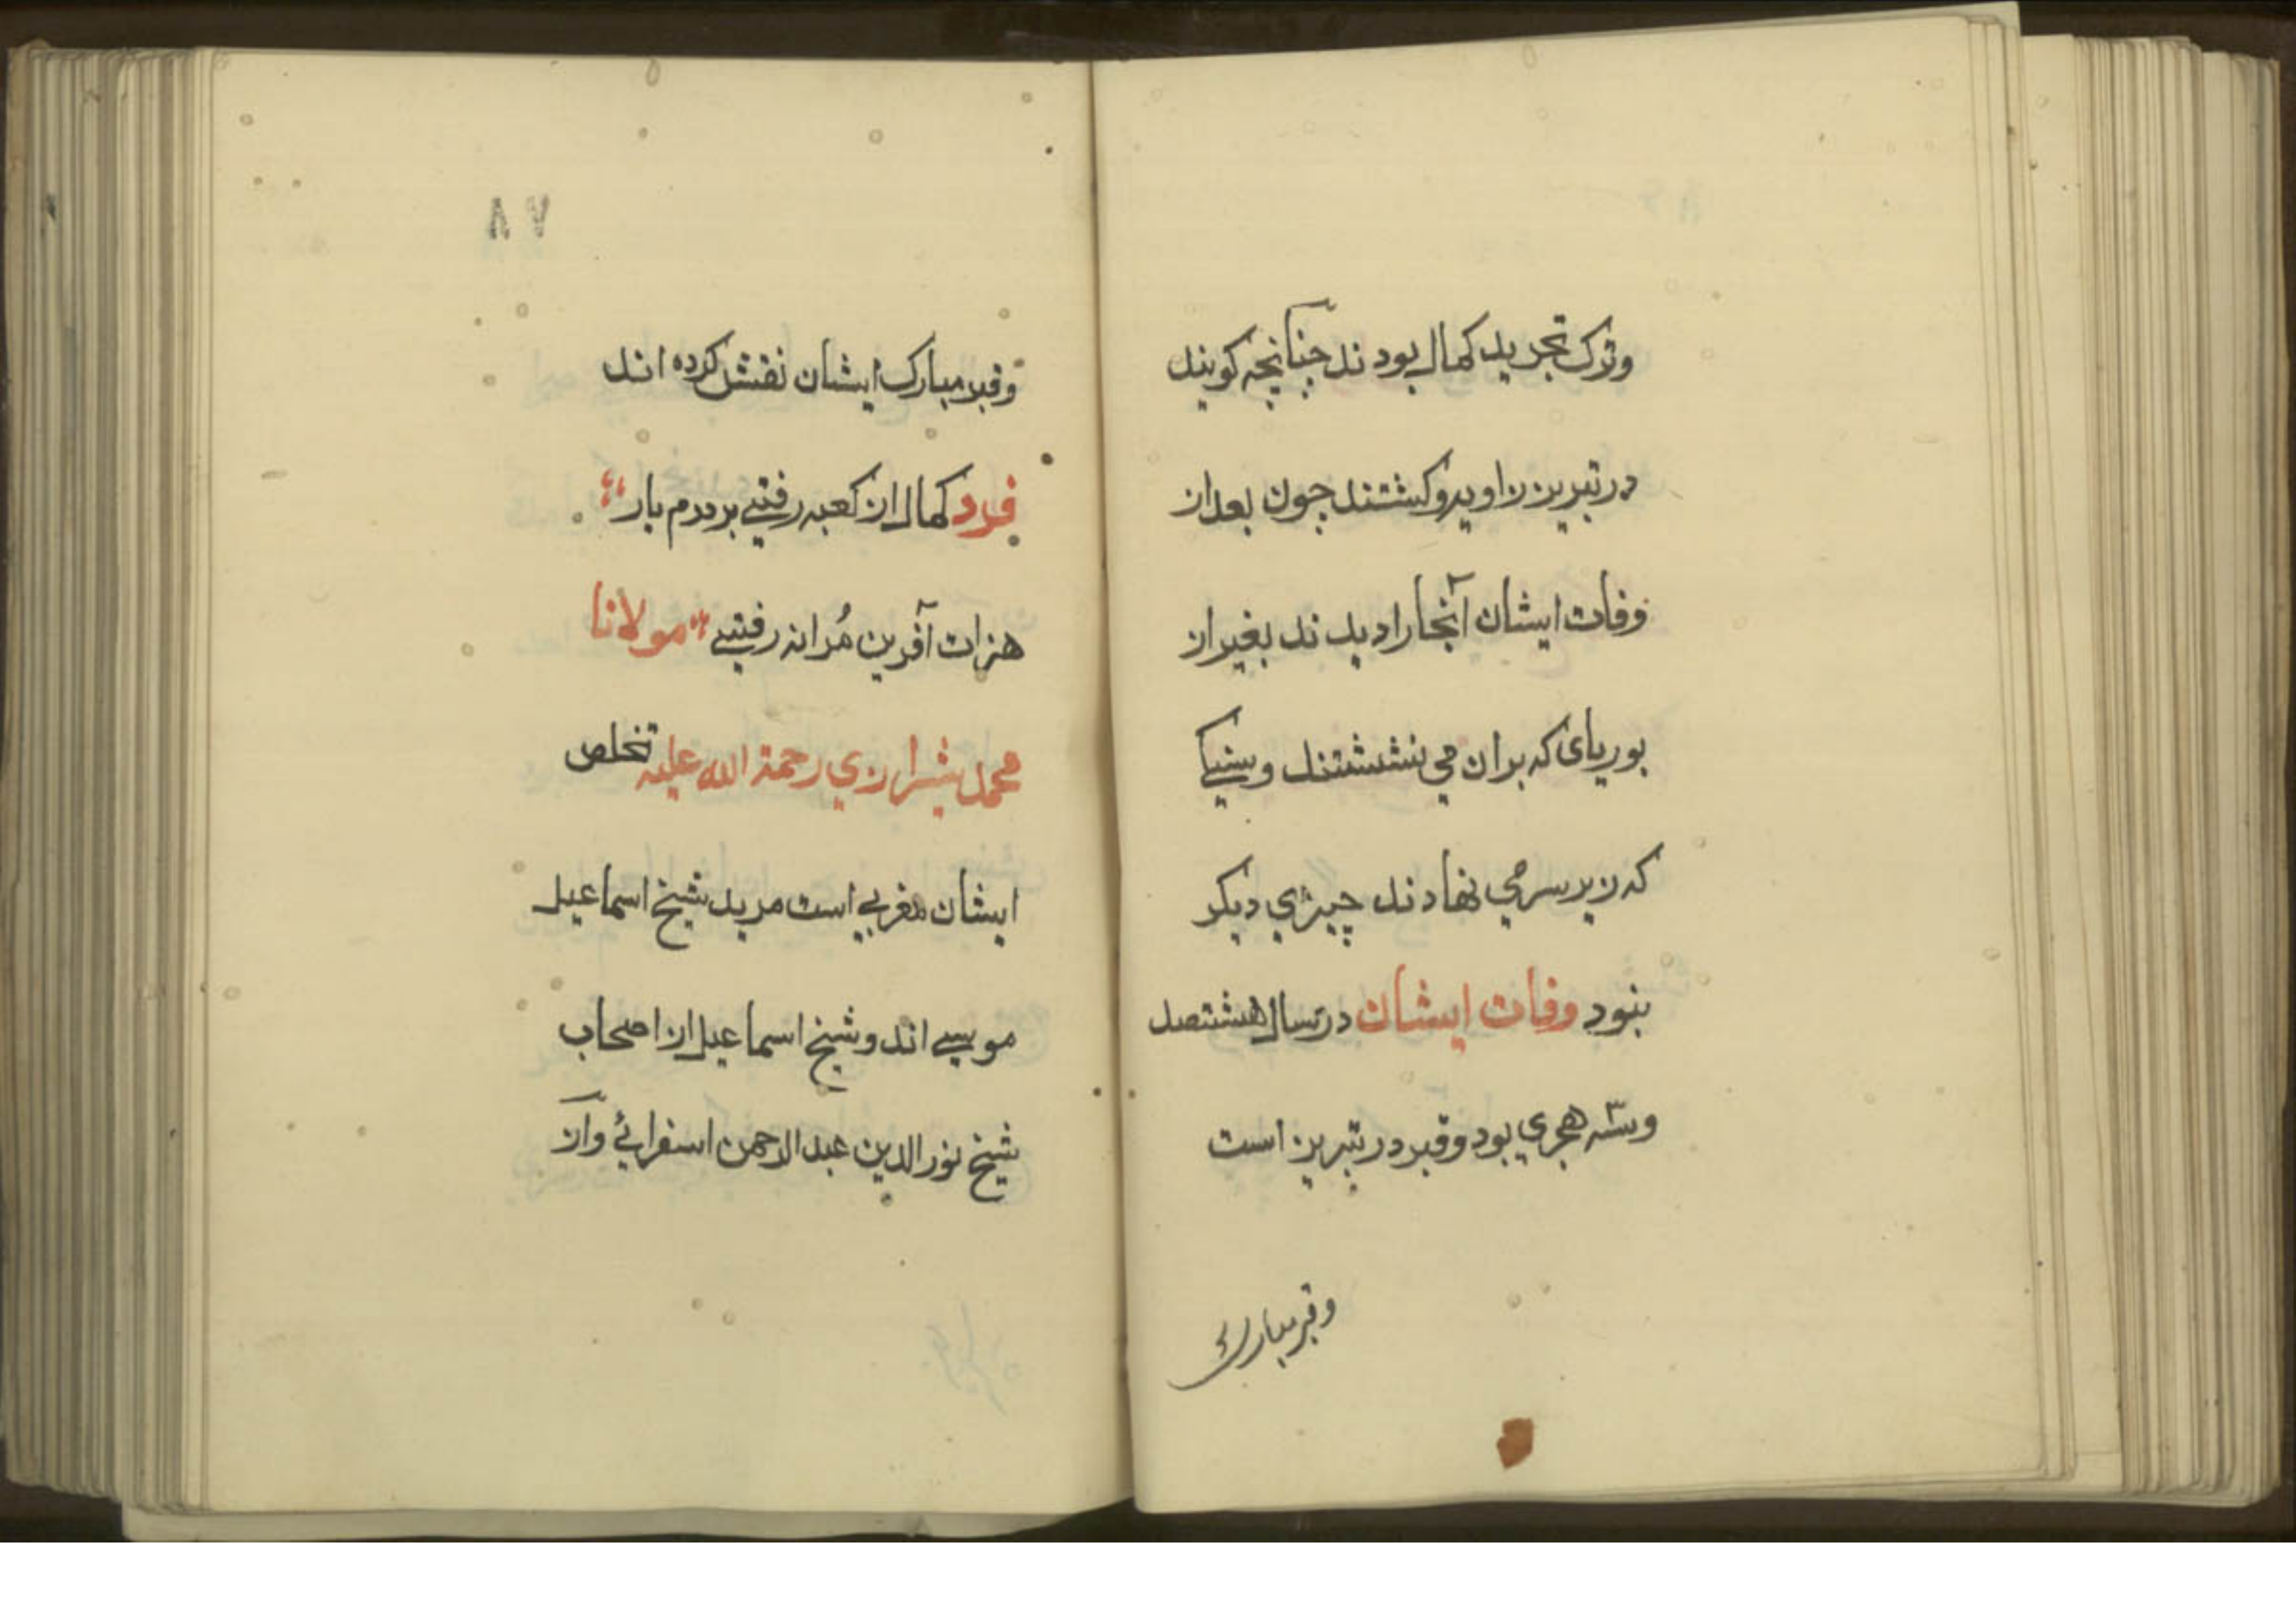 وترک تجرید کمال بودند چنانچه کویند
در تبریز زاویه وکشتند چون بعد از
وفات ایشان آنجا را دیدند بغیر از
بوریای که بران می نشستند وسنکی
که زیر سر می نهادند چیزی دیکر
بنود وفات ایشان در سال هشتصد
وسه هجری بود وقبر در تبریز است
وقبر مبارک
۸۷
وقبر مبارک ایشان نقش کرده اند
فرد کمال از کعبه رفتی بر درم یار
هزارت آفرین مُردانه رفتی مولانا
محمد شیرازی رحمة الله علیه تخلص
ایشان مغربی است مرید شیخ اسماعیل
موسی اند وشیخ اسماعیل از اصحاب
شیخ نور الدین عبد الرحمن اسفرائی واز